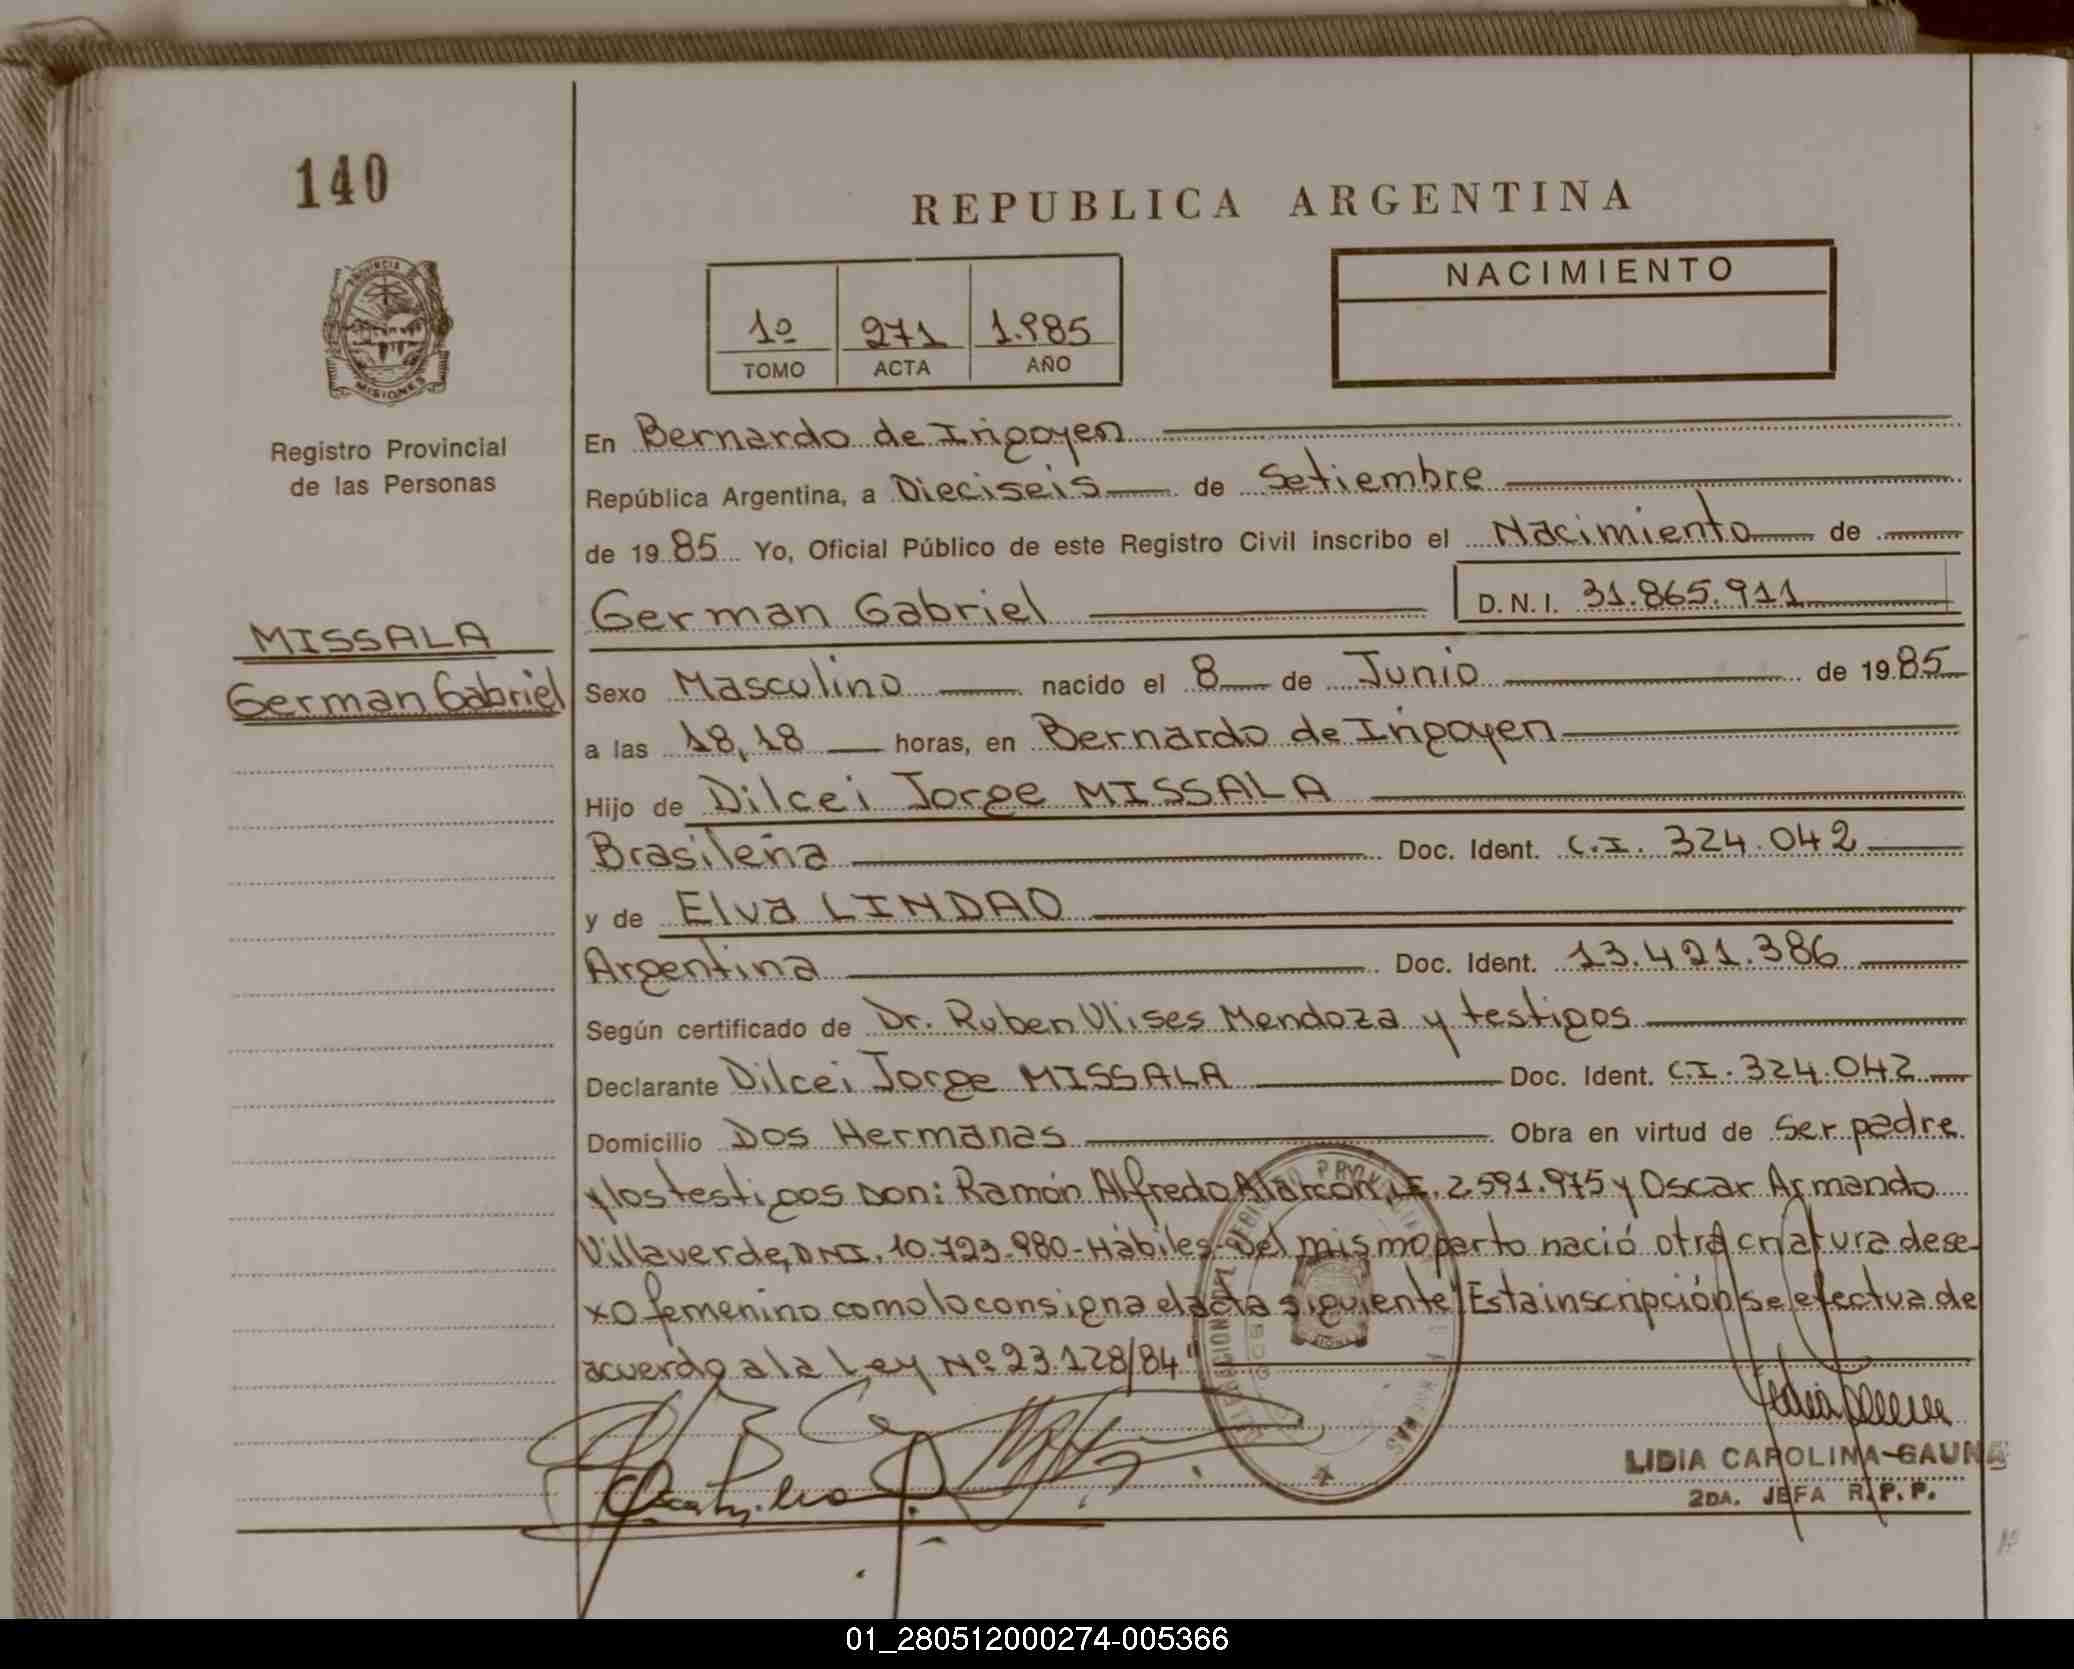 140
REPUBLICA ARGENTINA
NACIMIENTO
1º 271 1.985
TOMO ACTA AÑO
PROVINCIA
MISIONES
Registro Provincial
de las Personas
MISSALA
German Gabriel
En Bernardo de Irigoyen
República Argentina, a Dieciseis de Setiembre
de 19 85 Yo, Oficial Público de este Registro Civil inscribo el Nacimiento de
German Gabriel D.N.I. 31.865.911
Sexo Masculino nacido el 8 de Junio de 19 85
a las 18,18 horas, en Bernardo de Irigoyen
Hijo de Dilcei Jorge MISSALA
Brasileña Doc. Ident. C.I. 324.042
y de Elva LINDAO
Argentina Doc. Ident. 13.421.386
Según certificado de Dr. Ruben Ulises Mendoza y testigos
Declarante Dilcei Jorge MISSALA Doc. Ident. C.I. 324.042
Domicilio Dos Hermanas Obra en virtud de ser padre
y los testigos Don: Ramón Alfredo Alarcón, L.E. 2.591.975 y Oscar Armando
Villaverde, DNI. 10.723.980-Hábiles-Del mismo parto nació otra criatura de se-
xo femenino como lo consigna el acta siguiente "Esta inscripción se efectua de
acuerdo a la Ley Nº 23.128/84"
LIDIA CAROLINA GAUNA
2DA. JEFA R.P.P.
01_280512000274-005366